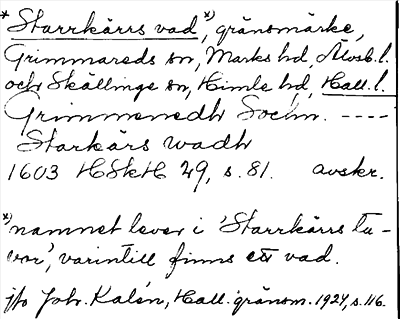 * Starrkärrs vad *), gränsmärke,
Grimmareds sn, Marks hd, Älvsb. l.
och Skällinge sn, Himle hd, Hall. l.
Grimmeredh Sochn. ----
Starkärs wadh
1603 HSkH 29, s. 81. avskr.
*) namnet lever i 'Starrkärrs tu-
vor', varintill finns ett vad.
jfo Joh. Kalén, Hall. gränsm. 1924, s. 116.